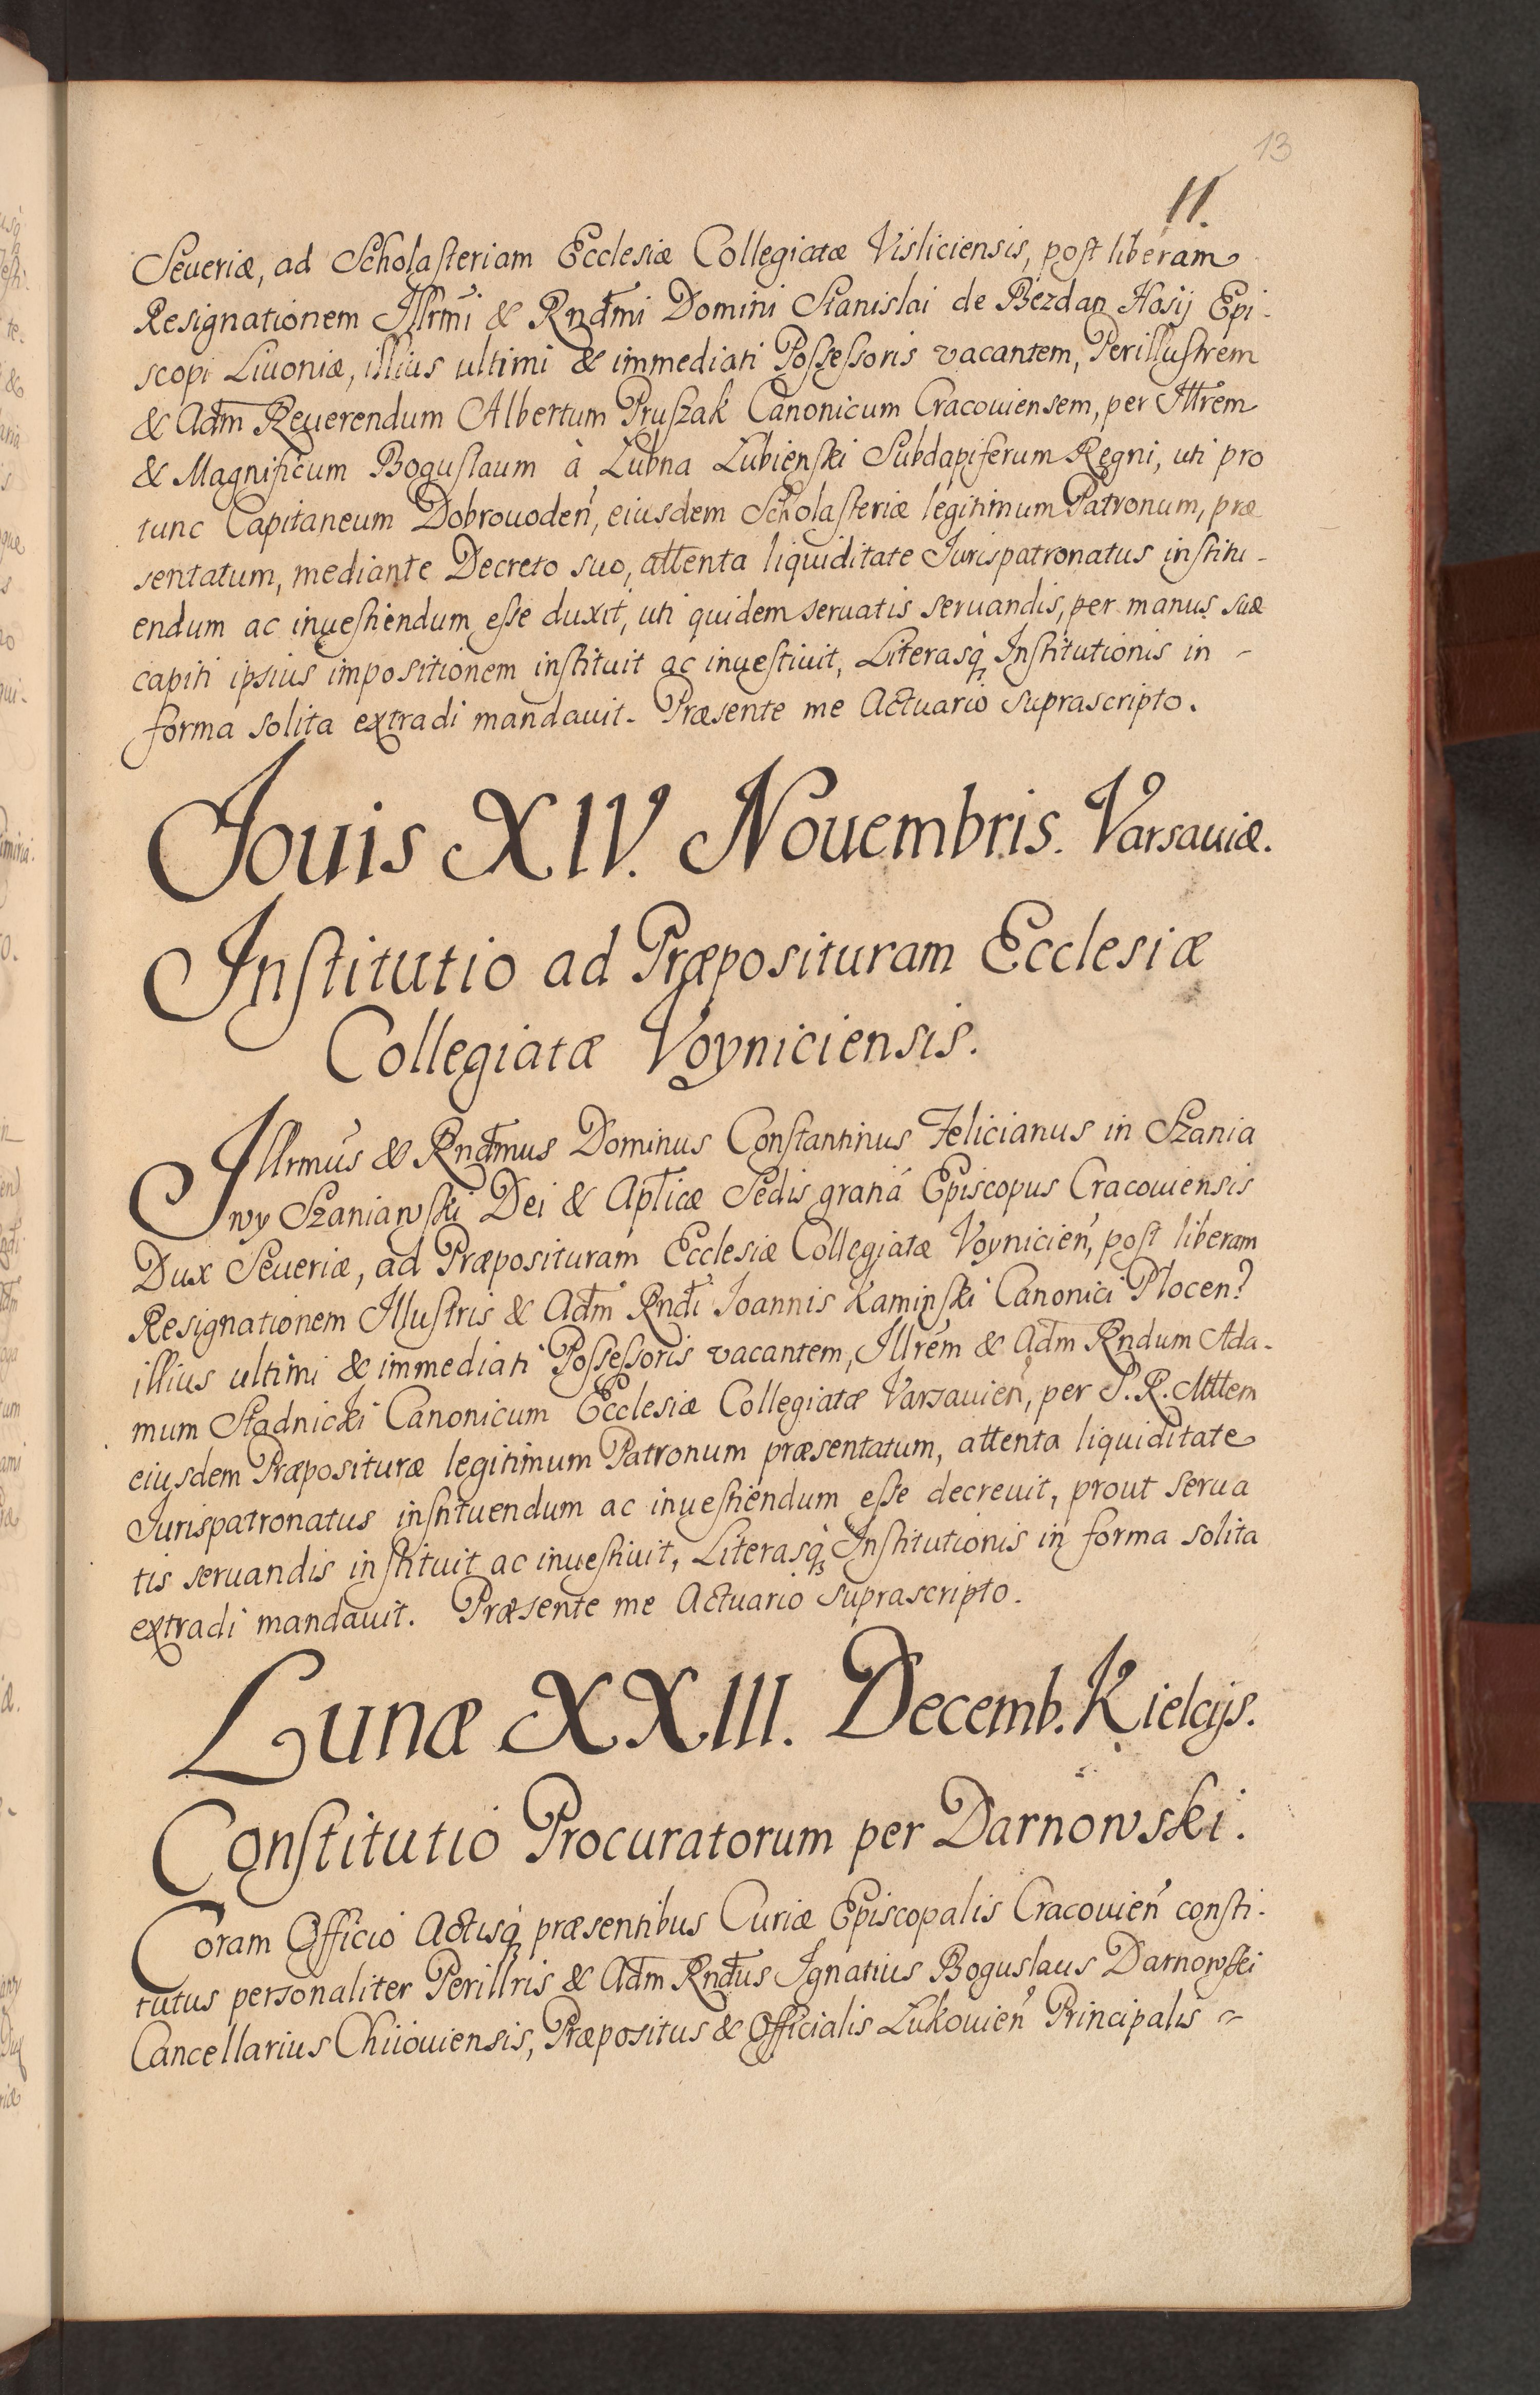 13
11.
Seueriæ, ad Scholasteriam Ecclesiæ Collegiatæ Visliciensis, post liberam
Resignationem Jllrmi & Rndmi Domini Stanislai de Bezdan Hosij Epi-
scopi Liuoniæ, illius ultimi & immediati Possessoris vacantem, Perillustrem
& Adm Reuerendum Albertum Pruszak Canonicum Cracouiensem, per Jllrem
& Magnificum Boguslaum à Lubna Lubienski Subdapiferum Regni, uti pro
tunc Capitaneum Dobrouoden, eiusdem Scholasteriæ legitimum Patronum, præ
sentatum, mediante Decreto suo, attenta liquiditate Jurispatronatus institu-
endum ac inuestiendum esse duxit, uti quidem seruatis seruandis, per manus suæ
capiti ipsius impositionem instituit ac inuestiuit, Literasq Institutionis in -
forma solita extradi mandauit. Præsente me Actuario suprascripto.
Jouis XIV. Nouembris. Varsauiæ.
Institutio ad Præposituram Ecclesiæ
Collegiatæ Voyniciensis.
Jllrmus & Rndmus Dominus Constantinus Felicianus in Szania
wy Szaniawski Dei & Aplicæ Sedis gratia Episcopus Cracouiensis
Dux Seueriæ, ad Præposituram Ecclesiæ Collegiatæ Voynicien, post liberam
Resignationem Jllustris & Adm Rndi Joannis Kaminski Canonici Plocen
illius ultimi & immediati Possessoris vacantem, Jllrem & Adm Rndum Ada-
mum Stadnicki Canonicum Ecclesiæ Collegiatæ Varsauien, per S. R. Mttem
eiusdem Præposituræ legitimum Patronum præsentatum, attenta liquiditate
Jurispatronatus instituendum ac inuestiendum esse decreuit, prout serua
tis seruandis instituit ac inuestiuit, Literasq Institutionis in forma solita
extradi mandauit. Præsente me Actuario suprascripto.
Lunæ XXIII. Decemb. Kielcijs.
Constitutio Procuratorum per Darnowski.
Coram Officio Actisq præsentibus Curiæ Episcopalis Cracouien consti-
tutus personaliter Perillris & Adm Rndus Jgnatius Boguslaus Darnowski
Cancellarius Chiiouiensis, Præpositus & Officialis Lukouien Principalis =